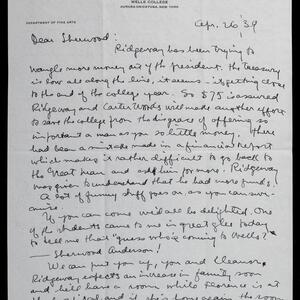 WELLS COLLEGE
AURORA-ON-CAYUGA, NEW YORK
DEPARTMENT OF FINE ARTS
Apr. 26 '39
Dear Sherwood:
Ridgeway has been trying to
wangle more money out of the president. The treasury
is low all along the line, it seems - it's getting close
to the end of the college year. So $75 is assured
Ridgeway and Carter Woods will make another effort
to save the college from the disgrace of offering so
important a man as you so little money. There
had been a mistake made in a financial report
which makes it rather difficult to go back to
the Great man and ask him for more. Ridgeway
was given to understand that he had more funds.
A lot of funny stuff goes on, as you can sur-
mise.
If you can come we'd all be delighted. One
of the students came to me in great glee today
to tell me that "guess who's coming to Wells?"
— Sherwood Anderson!
We can put you up, you and Eleanor.
Ridgeway expects an increase in family soon
and he'll have a room while Florence is at
the hospital and if she's home again the room